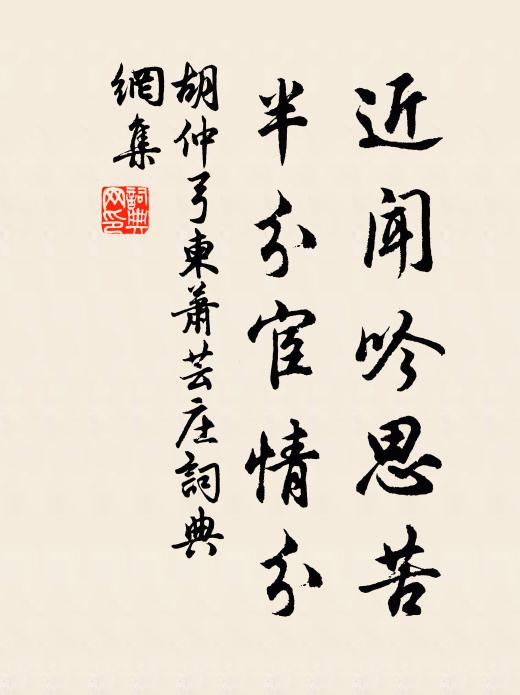 近闻吟思苦
半分宦情分
胡仲弓東蕭芸庄詞典
網集
詞典網印